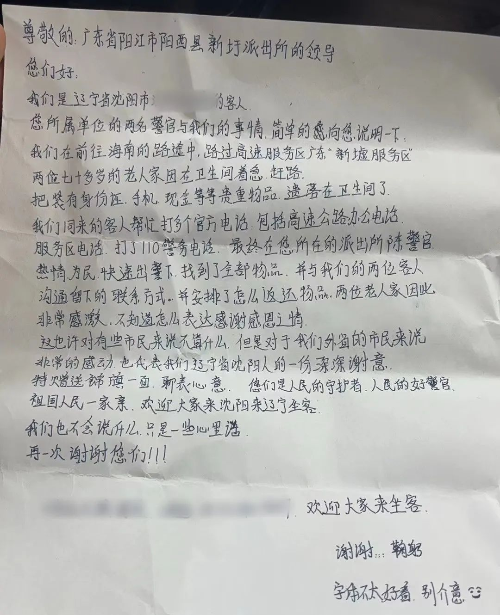 尊敬的：广东省阳江市阳西县新圩派出所的领导
您们好：
我们是辽宁省沈阳市 的客人
您所属单位的两名警官与我们的事情，简单的向您说明一下
我们在前往海南的路途中，路过高速服务区广东“新墟服务区”
两位七十多岁的老人家因在卫生间着急，赶路
把装有身份证、手机、现金等等贵重物品，遗落在卫生间了
我们同来的客人帮忙打多个官方电话，包括高速公路办公电话，
服务区电话，打了110警务电话，最终在您所在的派出所陈警官
热情为民，快速出警下，找到了全部物品，并与我们的两位客人
沟通留下的联系方式，并安排了怎么返还物品，两位老人家因此
非常感激，不知道怎么表达感谢感恩之情
这也许对有些市民来说不算什么，但是对于我们外省的市民来说
非常的感动，也代表我们辽宁省沈阳人的一份深深谢意
特次赠送锦旗一面，聊表心意，您们是人民的守护者，人民的好警官
祖国人民一家亲，欢迎大家来沈阳来辽宁坐客
我们也不会说什么，只是一些心里话
再一次谢谢您们!!!
欢迎大家来坐客
谢谢...鞠躬
字体不太好看，别介意☺